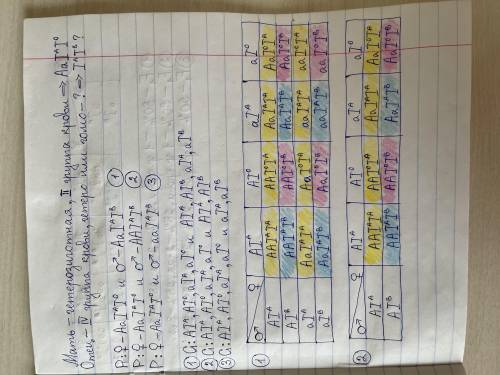 Мать – гетерозиготная, II группа крови ⇒ AaIᴬI⁰
Отец – IV группа крови, гетеро или гомо – ? ⇒ IᴬIᴮ ?
P: ♀ – AaIᴬI⁰ и ♂ – AaIᴬIᴮ ①
P: ♀ – AaIᴬI⁰ и ♂ – AAIᴬIᴮ ②
P: ♀ – AaIᴬI⁰ и ♂ – aaIᴬIᴮ ③
① G: AIᴬ, AI⁰, aIᴬ, aI⁰ и AIᴬ, AIᴮ, aIᴬ, aIᴮ
② G: AIᴬ, AI⁰, aIᴬ, aI⁰ и AIᴬ, AIᴮ
③ G: AIᴬ, AI⁰, aIᴬ, aI⁰ и aIᴬ, aIᴮ
①
♂ ♀ AIᴬ AI⁰ aIᴬ aI⁰
AIᴬ AAIᴬIᴬ AAI⁰Iᴬ AaIᴬIᴬ AaI⁰Iᴬ
AIᴮ AAIᴬIᴮ AAI⁰Iᴮ AaIᴬIᴮ AaI⁰Iᴮ
aIᴬ AaIᴬIᴬ AaI⁰Iᴬ aaIᴬIᴬ aaI⁰Iᴬ
aIᴮ AaIᴬIᴮ AaI⁰Iᴮ aaIᴬIᴮ aaI⁰Iᴮ
②
♂ ♀ AIᴬ AI⁰ aIᴬ aI⁰
AIᴬ AAIᴬIᴬ AAI⁰Iᴬ AaIᴬIᴬ AaI⁰Iᴬ
AIᴮ AAIᴬIᴮ AAI⁰Iᴮ AaIᴬIᴮ AaI⁰Iᴮ